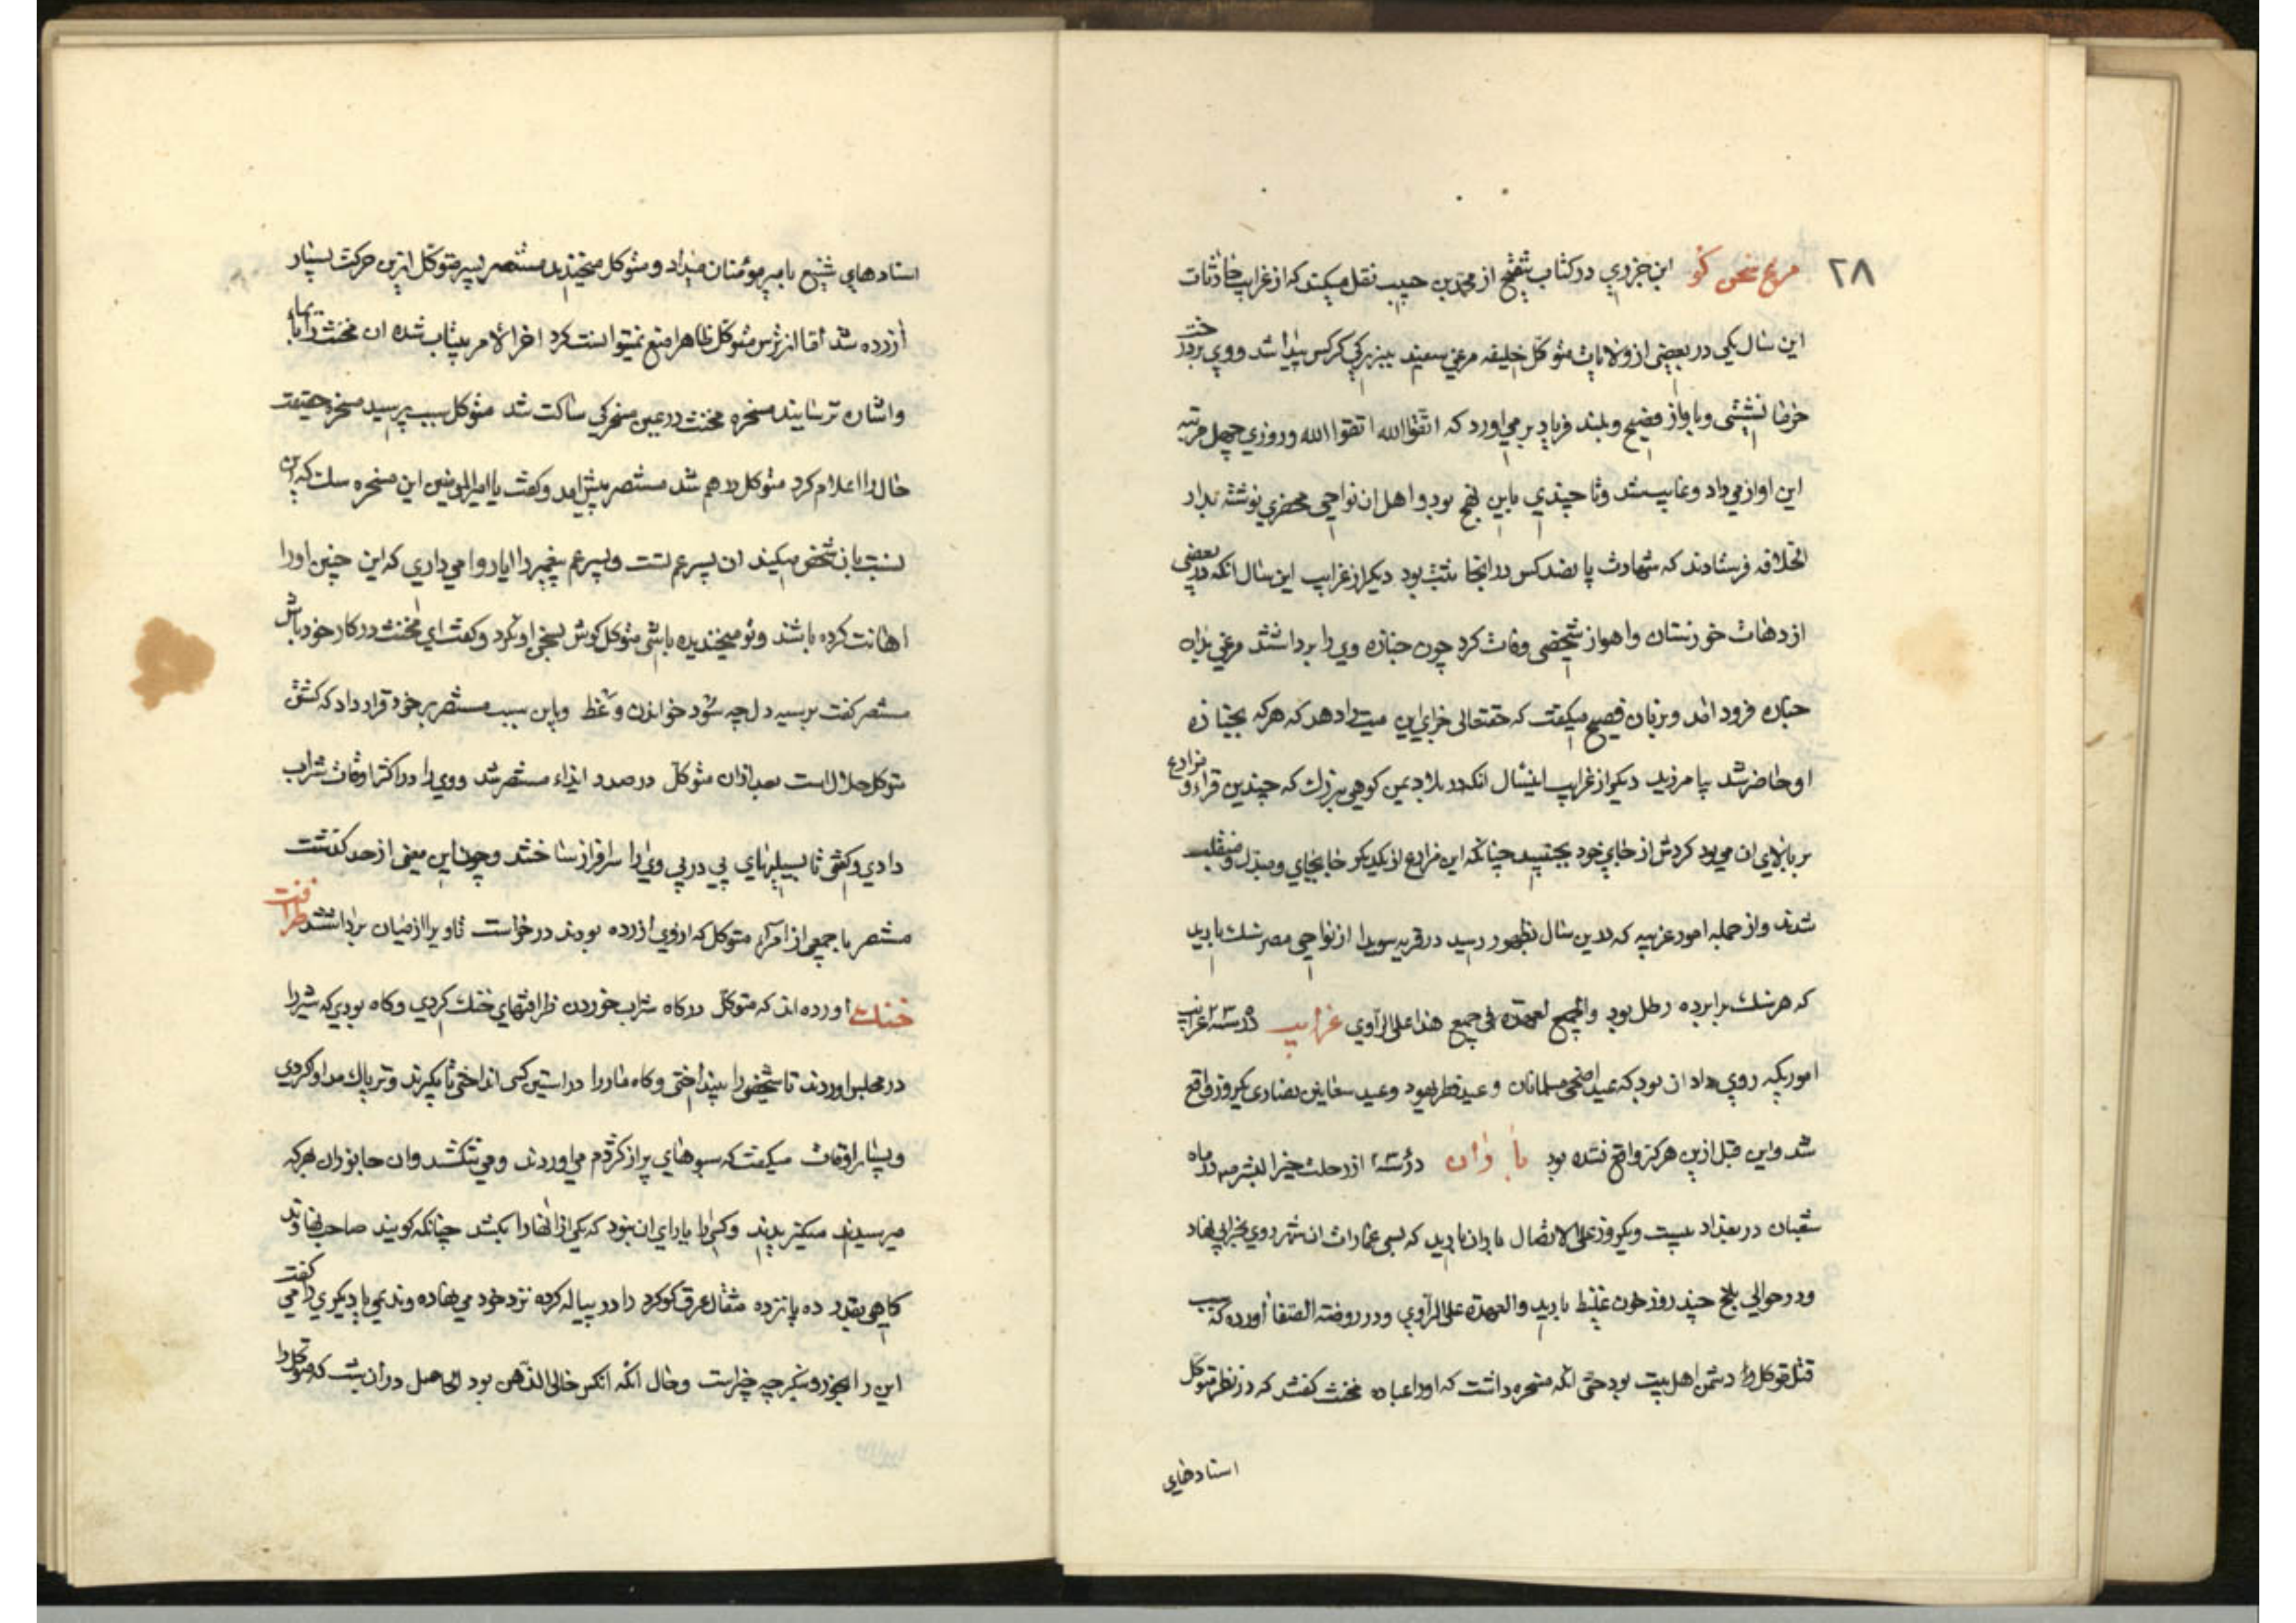 ۲۸ مرغ سخن گو ابن جزوی در کتاب تنقیح از محمد بن حبیب نقل میکند که از غرایب حادثات
این سال یکی در بعضی از ولایات متوکل خلیفه مرغی سفید ببزرگی کرکس پیدا شد و وی بر درخت
خرما نشستی و باواز فصیح و بلند فریاد بر می اورد که اتقوا الله اتقوا الله و روزی چهل مرتبه
این اواز می داد و غایب شد و تا چندی باین نهج بود و اهل ان نواحی محضری نوشته بدار
الخلافه فرستادند که شهادت پانصد کس در انجا ثبت بود دیگر از غرایب این سال انکه در بعضی
از دهات خوزستان و اهواز شخصی وفات کرد چون جنازه وی را برداشتند مرغی بران
جنازه فرود امد و بزبان فصیح میگفت که حقتعالی جزای این میت دهد که هر که بجنازه
او حاضر شد بیامرزید دیگر از غرایب اینسال انکه در بلاد یمن کوهی بزرک که چندین قراء و مزارع
بر بالای ان می بود کردش از جای خود بجنبید چنانکه این مزارع از یکدیگر جابجای و مبدل و منقلب
شدند و از جمله امور غریبه که درین سال بظهور رسید در قریه سویدا از نواحی مصر سنک بارید
که هر سنک برابر ده رطل بود والعهدة فی جمیع هذا علی الراوی غرایب در سنه غرایب
اموریکه روی داد ان بود که عید اضحی مسلمانان و عید فطر یهود و عید سعانین نصاری یکروز واقع
شد و این قبل ازین هرکز واقع نشده بود باران در سنه از رحلت خیر البشر در ماه
شعبان در بغداد بیست و یکروز علی الاتصال باران بارید که بسی عمارات ان شهر روی بخرابی نهاد
و در حوالی بلخ چند روز خون غلیظ بارید والعهدة علی الراوی و در روضة الصفا اورده که سبب
قتل متوکل دشمن اهل بیت بود حتی انکه مسخره داشت که او را عباده مخنث گفتند که در نظر متوکل
اسنادهای
اسنادهای شنیع بامیر مومنان میداد و متوکل میخندید مستنصر پسر متوکل ازین حرکت بسیار
ازرده شد اما از ترس متوکل ظاهرا منع نمیتوانست کرد اخر الامر بیتاب شده ان مخنث را بایما
و اشاره ترسانید مسخره مخنث در عین مسخرکی ساکت شد متوکل سبب پرسید مسخره حقیقت
حال را اعلام کرد متوکل درهم شد مستنصر پیش امد و کفت یا امیر المومنین این مسخره سک که این
نسبت بان شخص میکند ان پسر عم تست و پسر عم پیغمبر را ایا روا می داری که این چنین او را
اهانت کرده باشد و تو میخندیده باشی متوکل کوش بسخن او نکرد و کفت ای مخنث در کار خود باش
مستنصر کفت بر سیه دل چه سود خواندن وعظ و باین سبب مستنصر بر خود قرار داد که کشتن
متوکل حلال است بعد ازان متوکل در صدد ایذاء مستنصر شد و وی را در اکثر اوقات شراب
دادی و کفتی تا بسیلیهای پی در پی وی را سرافراز ساختند و چون این معنی از حد کذشت
مستنصر با جمعی از امرای متوکل که از وی ازرده بودند درخواست تا ویرا از میان برداشتند ظرافت
خنک اورده اند که متوکل در کاه شراب خوردن ظرافتهای خنک کردی و کاه بودی که شیر را
در مجلس اوردند تا شخصی را بینداختی و کاه مار را در استین کسی انداختی تا بگیرند و تریاک مداوا کردی
و بسیار اوقات میکفت که سبوهای پر از کژدم می اوردند و می شکستند و ان جانوران بهر که
میرسیدند میکزیدند و کسی را یارای ان نبود که یکی از انها را بکشد چنانکه کویند صاحب نهاوند
کاهی بقدر ده پانزده مثقال عرق کوکرد را در پیاله کرده نزد خود می نهاده و ندیمی یا دیکری را می کفت
این را بخور و بنگر چه چیز است و حال انکه انکس خالی الذهن بود الحاصل در ان شب که متوکل را